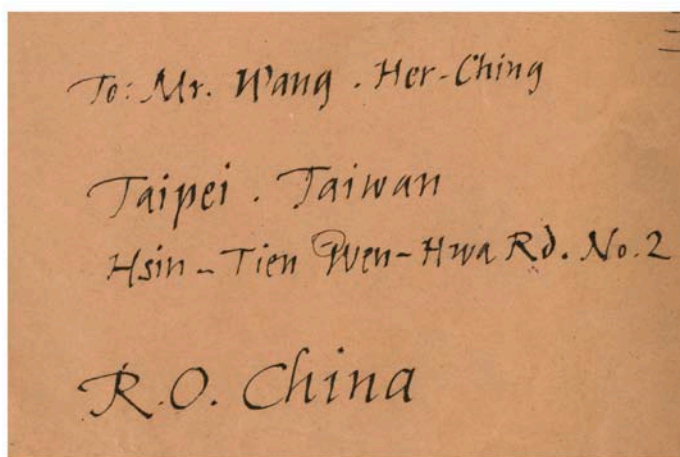 To: Mr. Wang . Her-Ching
Taipei . Taiwan
Hsin - Tien Wen-Hwa Rd. No. 2
R.O. China